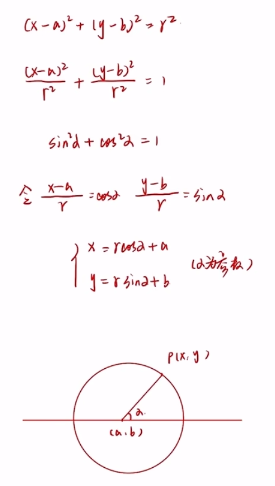 (x-a)² + (y-b)² = r²
(x-a)²/r² + (y-b)²/r² = 1
sin²α + cos²α = 1
令 x-a/r = cosα y-b/r = sinα
{ x = r cosα + a
y = r sinα + b (α为参数)
P(x, y)
α
(a, b)